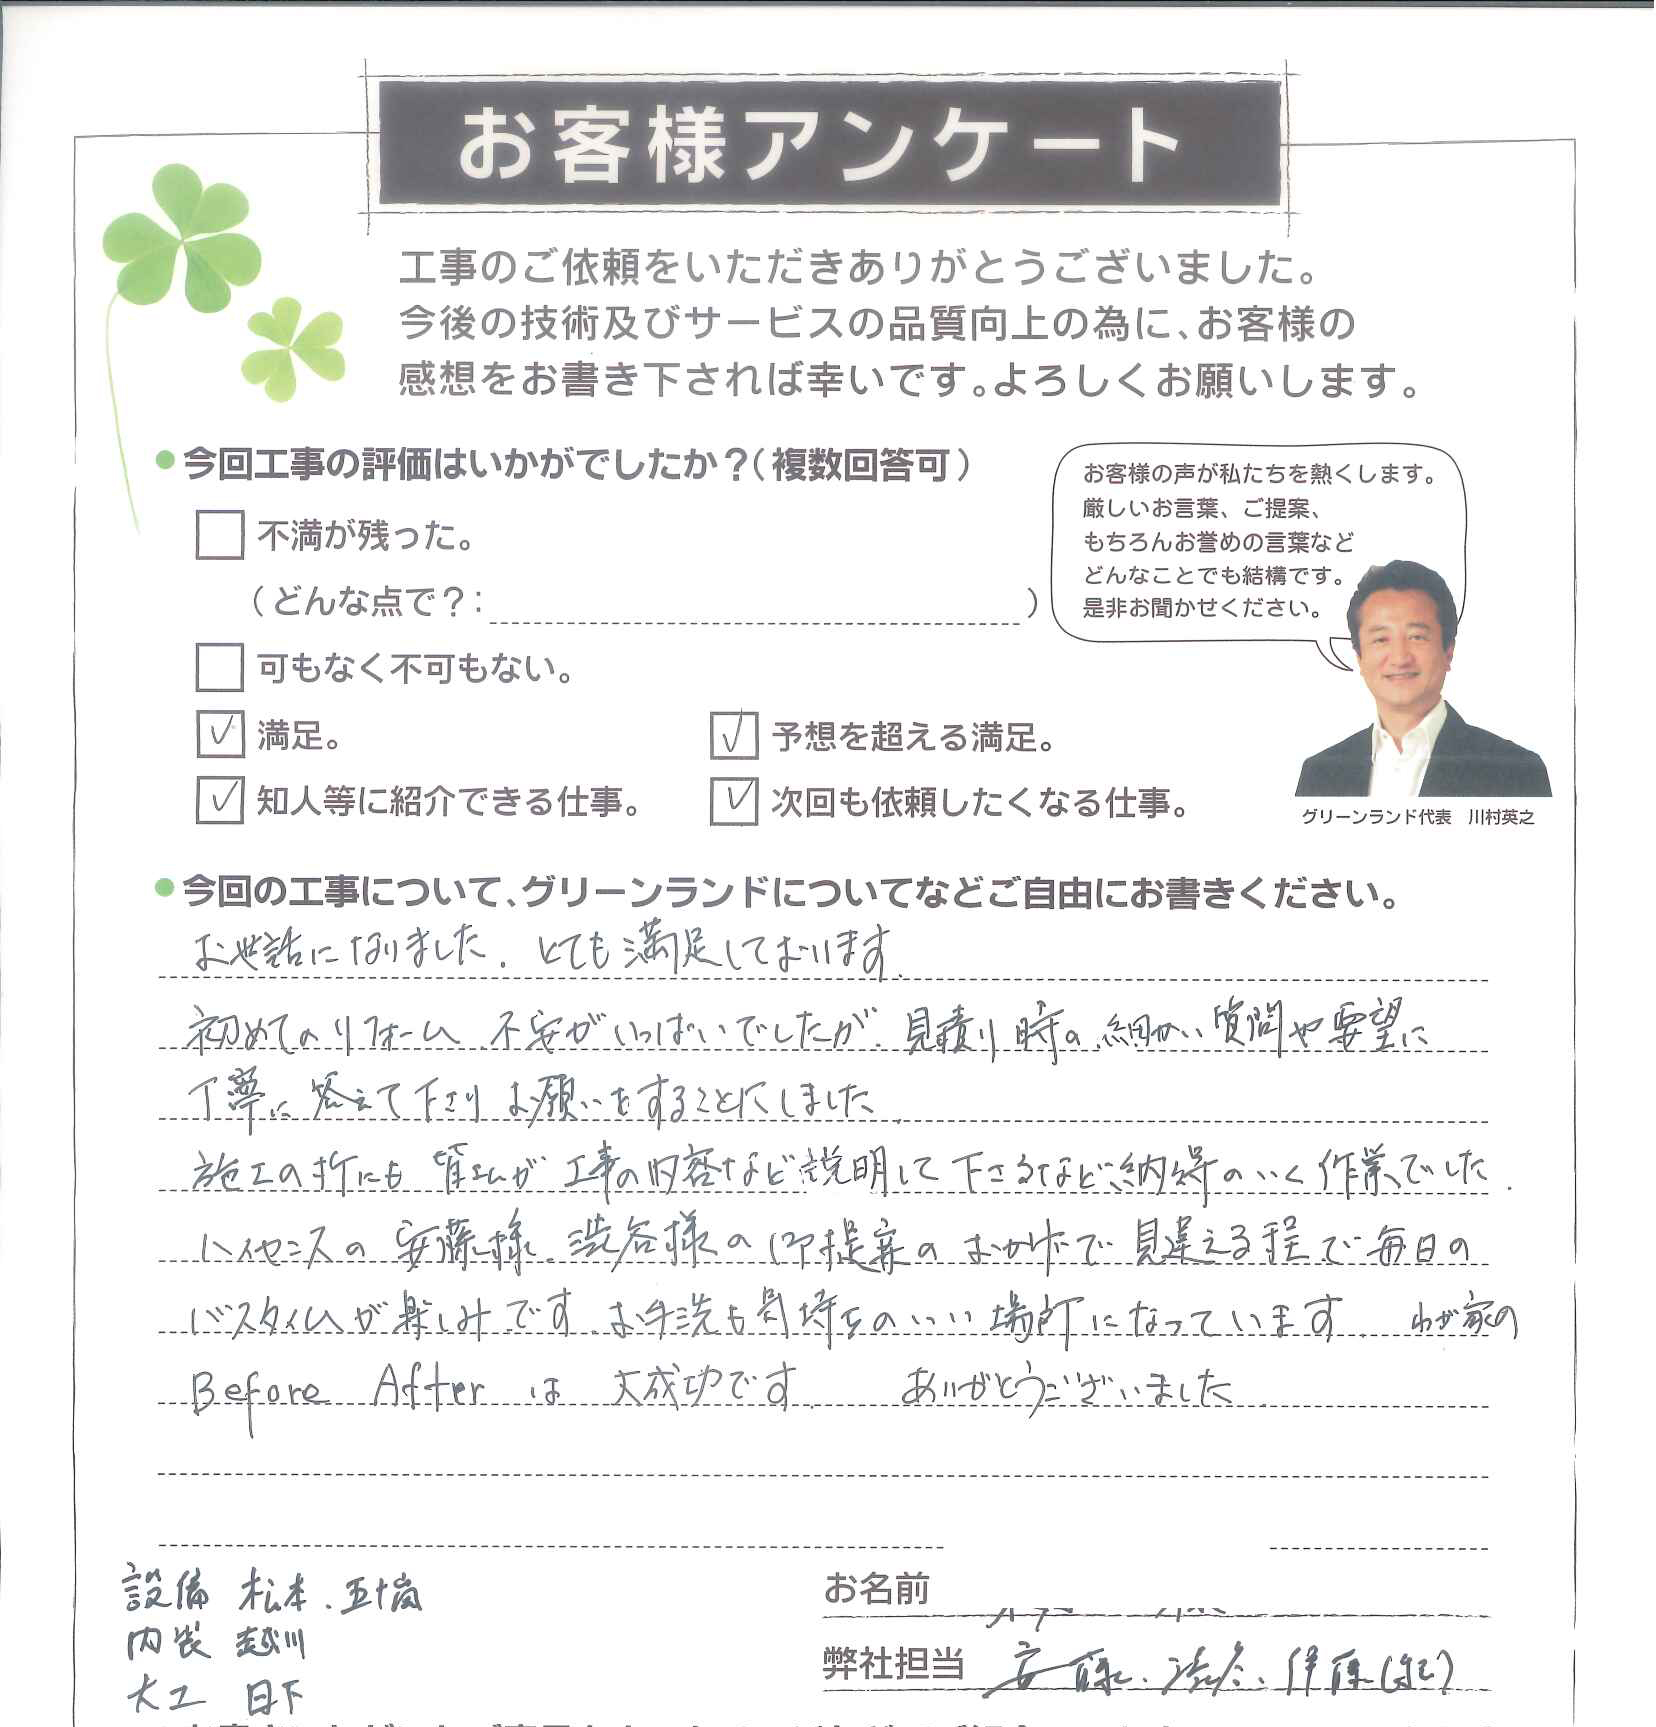 お客様アンケート
工事のご依頼をいただきありがとうございました。
今後の技術及びサービスの品質向上の為に、お客様の
感想をお書き下されば幸いです。よろしくお願いします。
今回工事の評価はいかがでしたか？（複数回答可）
不満が残った。
（どんな点で？： ）
可もなく不可もない。
満足。
予想を超える満足。
知人等に紹介できる仕事。
次回も依頼したくなる仕事。
お客様の声が私たちを熱くします。
厳しいお言葉、ご提案、
もちろんお誉めの言葉など
どんなことでも結構です。
是非お聞かせください。
グリーンランド代表 川村英之
今回の工事について、グリーンランドについてなどご自由にお書きください。
お世話になりました。とても満足しております。
初めてのリフォーム、不安がいっぱいでしたが、見積り時の細かい質問や要望に
丁寧に答えて下さりお願いをすることにしました。
施工の折にも皆さんが工事の内容など説明して下さるなど納得のいく作業でした。
ハイセンスの安藤様、渋谷様の御提案のおかげで見違える程で毎日の
バスタイムが楽しみです。お手洗も気持ちのいい場所になっています。わが家の
Before After は 大成功です。 ありがとうございました。
設備 松本、五十嵐
内装 越川
大工 日下
お名前
弊社担当 安藤、渋谷、伊藤(記)